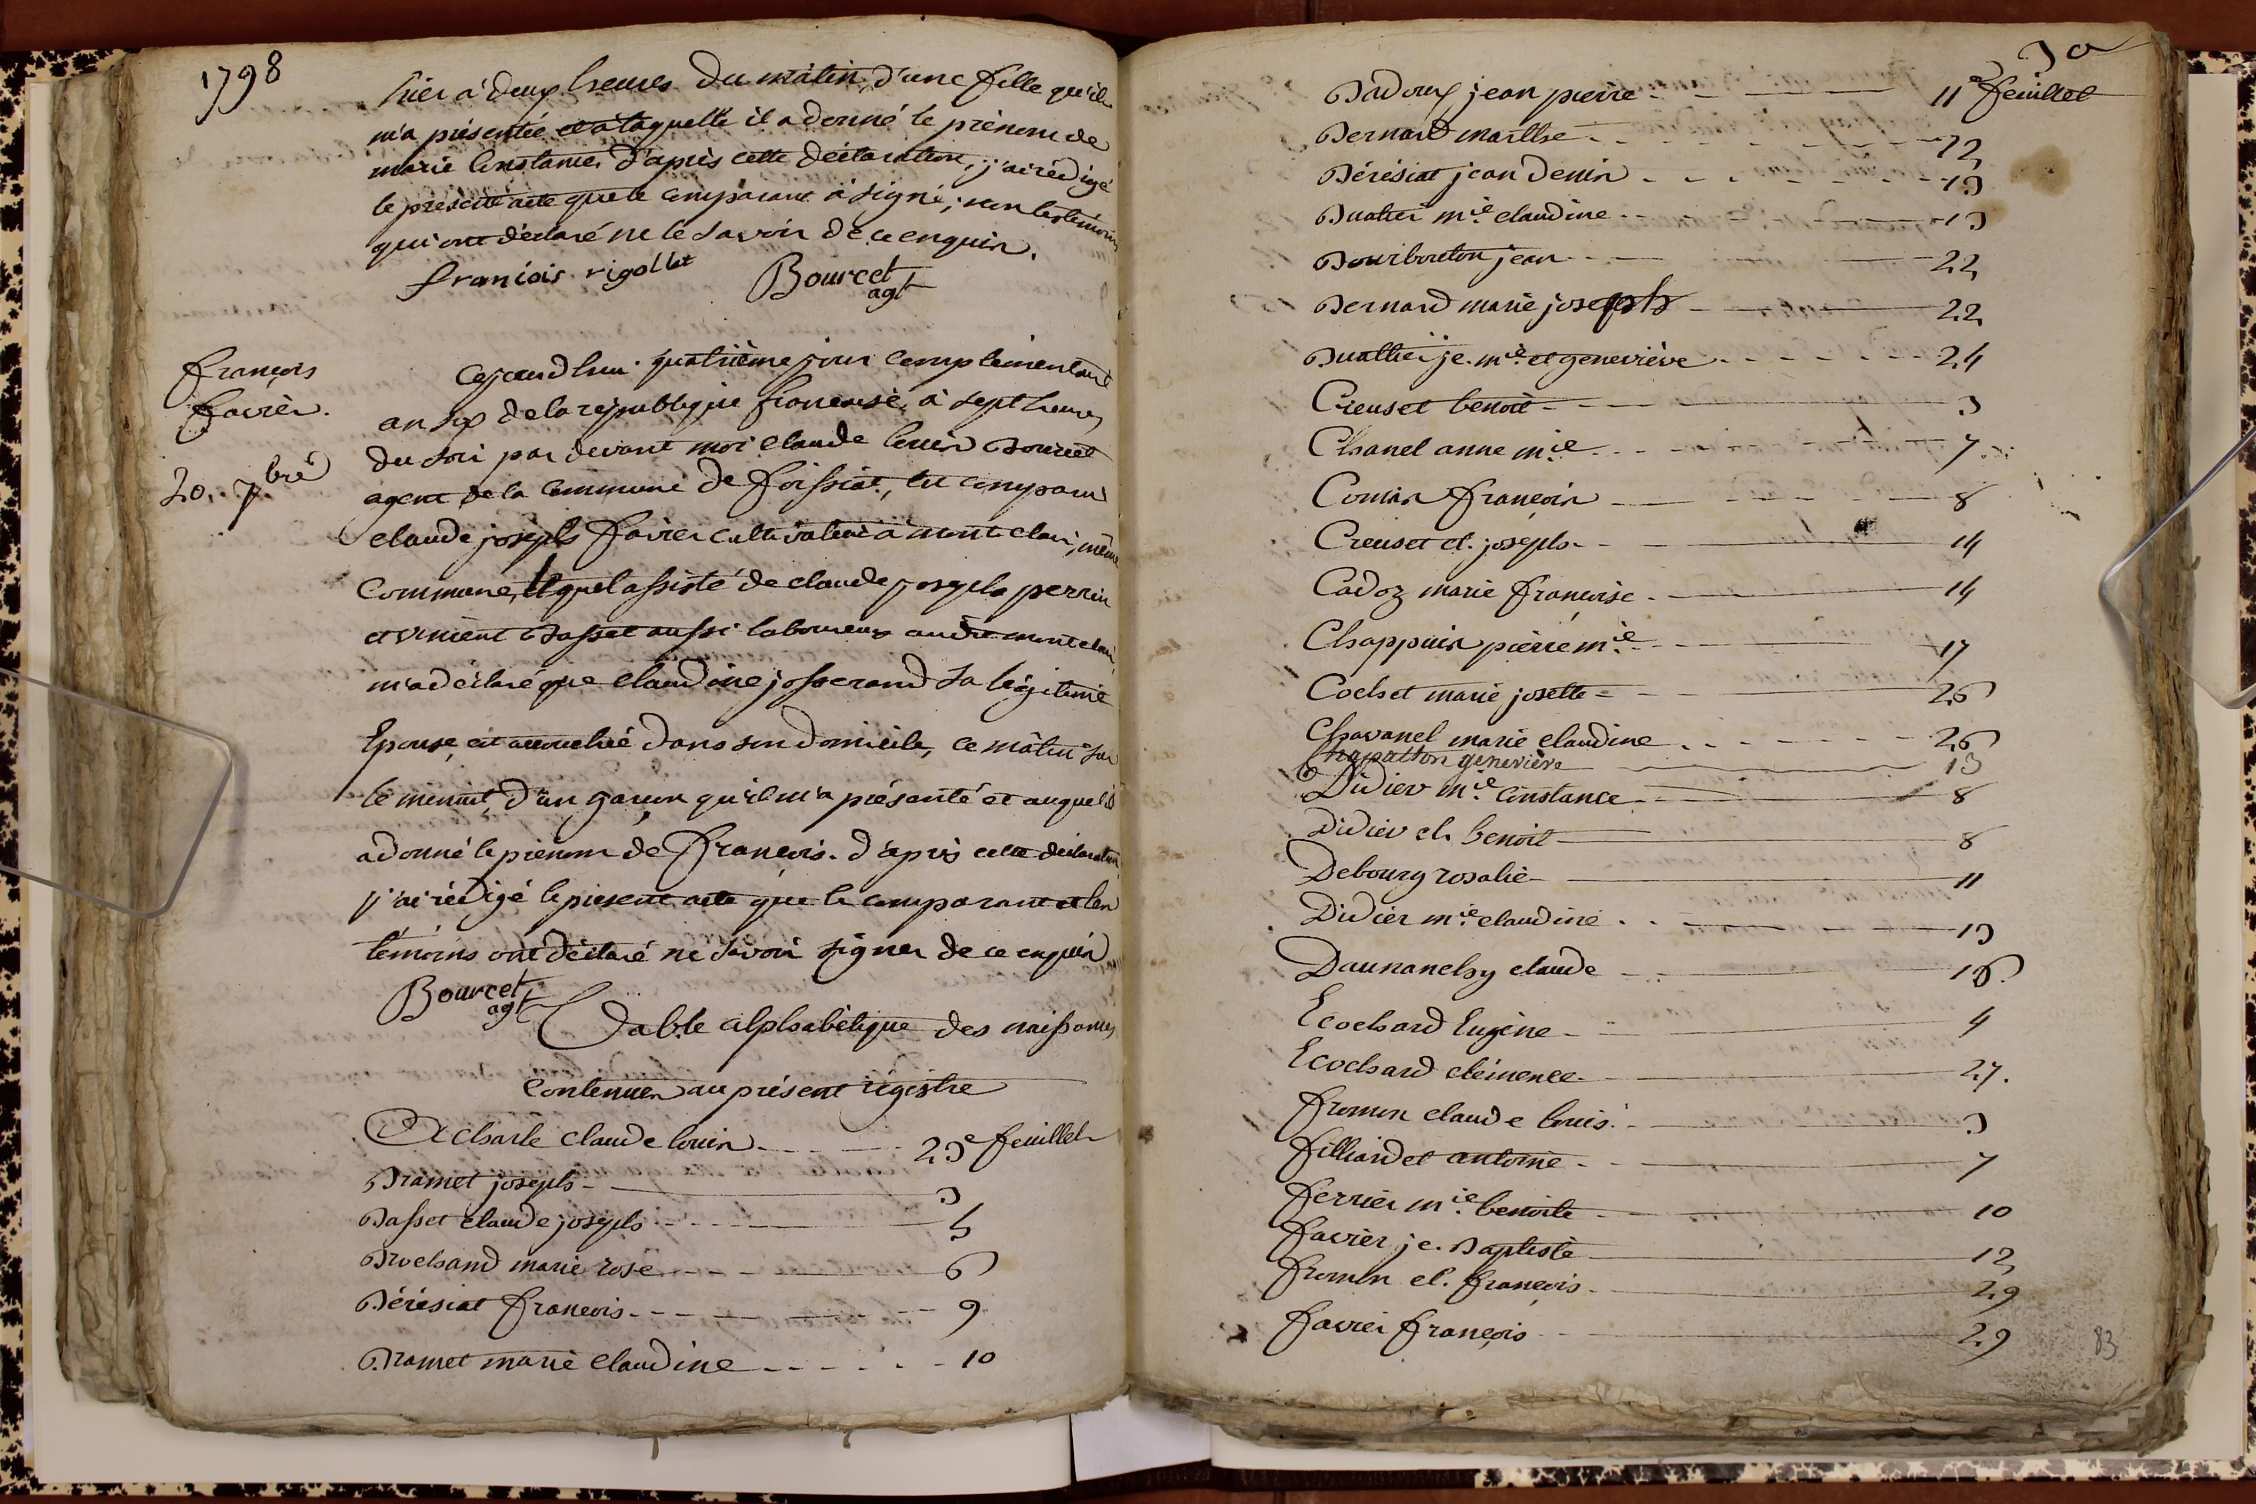 1798
hier à deux heures du matin, d'une fille qu'il
m'a présentée et à laquelle il a donné le prénom de
marie Constance, d'après cette déclaration, j'ai rédigé
le présent acte que le comparant à signé, non les témoins
qui ont déclaré ne le savoir de ce enquis.
franciois rigollet Bourcet
agt
françois
favier.
20. 7bre
Cejourdhui quatrième jour complémentaire
an six de la république francaise, à sept heures
du soir par devant moi claude louis Bourcet
agent de la commune de foissiat, est comparu
claude joseph favier cultivateur à mont clair, même
Commune, lequel assisté de claude joseph perrin
et vincent Basset aussi laboureurs audit mont clair,
m'a déclaré que claudine josserand sa légitime
Epouse, est accouchée dans son domicile, ce mâtin sur
le minuit, d'un garçon qu'il m'a présenté et auquel il
a donné le prénom de françois. d'après cette déclaration,
j'ai rédigé le présent acte que le comparant et les
témoins ont déclaré ne savoir signer de ce enquis
Bourcet
agt
Table alphabétique des naissances
Contenues au présent régistre
Acharle claude louis 23e feuillet
Bramet joseph 3
Basset claude joseph 5
Brochand marie rose 6
Bérésiat francois 9
Bramet marie claudine 10
30
Badoux jean pierre 11e feuillet
Bernard marthe 12
Bérésiat jean denis 13
Buatier mie claudine 13
Bourbouton jean 22
Bernard marie joseph 22
Buathier je. mie et geneviève 24
Creuset benoit 3
Chanel anne mie 7
Comas françois 8
Creuset cl. joseph 14
Cadoz marie francoise 14
Chappuis pierre mie 17
Cochet marie josette 26
Chavanel marie claudine 26
Chapatton geneviève 13
Didier mie Constance 8
Didier cl. benoit 8
Debourg rosalie 11
Didier mie claudine 13
Daunanchy claude 16
Ecochard Eugène 4
Ecochard clémence 27.
fromon claude louis 3
filliardet antoine 7
ferrier mie benoite 10
favier je. Baptiste 12
fromon cl. françois 29
favier françois 29
83